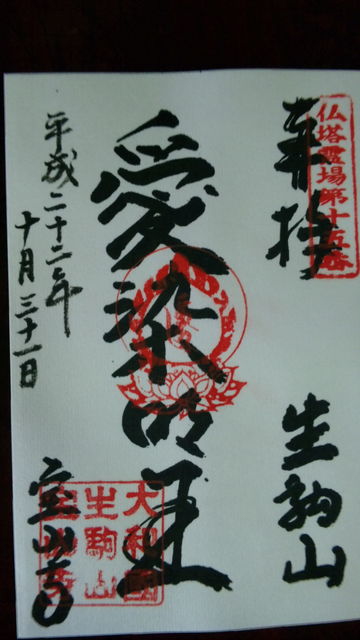 奉拝
仏塔霊場第十五番
生駒山
愛染明王
平成二十二年
十月三十一日
宝山寺
大和國
生駒山
宝山寺